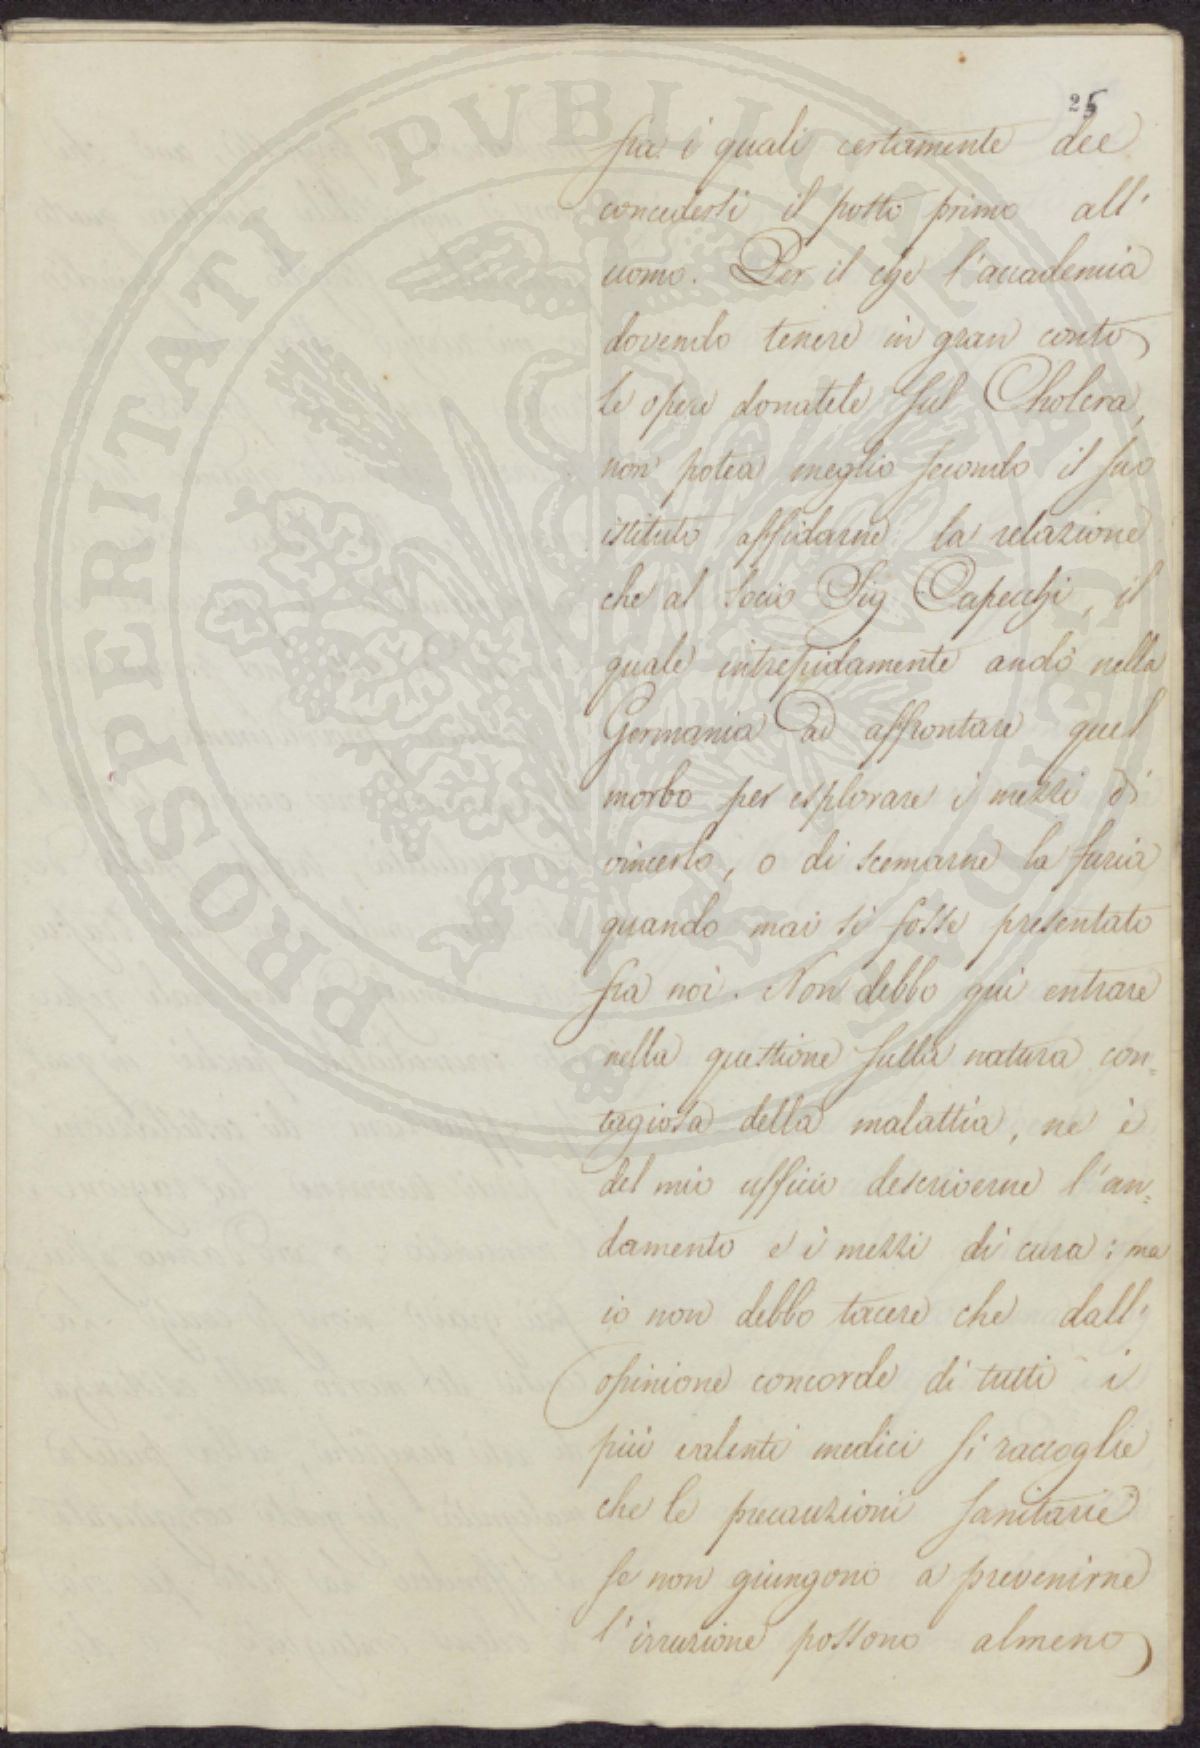 25
fra i quali certamente dee
concedersi il posto primo all'
uomo. Per il che l'accademia
dovendo tenere in gran conto
le opere donatele sul Cholera,
non potea meglio secondo il suo
istituto affidarne la relazione
che al Socio Sig Capecchi, il
quale intrepidamente andò nella
Germania ad affrontare quel
morbo per esplorare i mezzi di
vincerlo, o di scemarne la furia
quando mai si fosse presentato
fra noi. Non debbo qui entrare
nella questione sulla natura con=
tagiosa della malattia, ne è
del mio ufficio descriverne l'an=
damento e i mezzi di cura: ma
io non debbo tacere che dall'
opinione concorde di tutti i
più valenti medici si raccoglie
che le precauzioni sanitarie
se non giungono a prevenirne
l'irruzione possono almeno
PROSPERITATI PUBLICAE